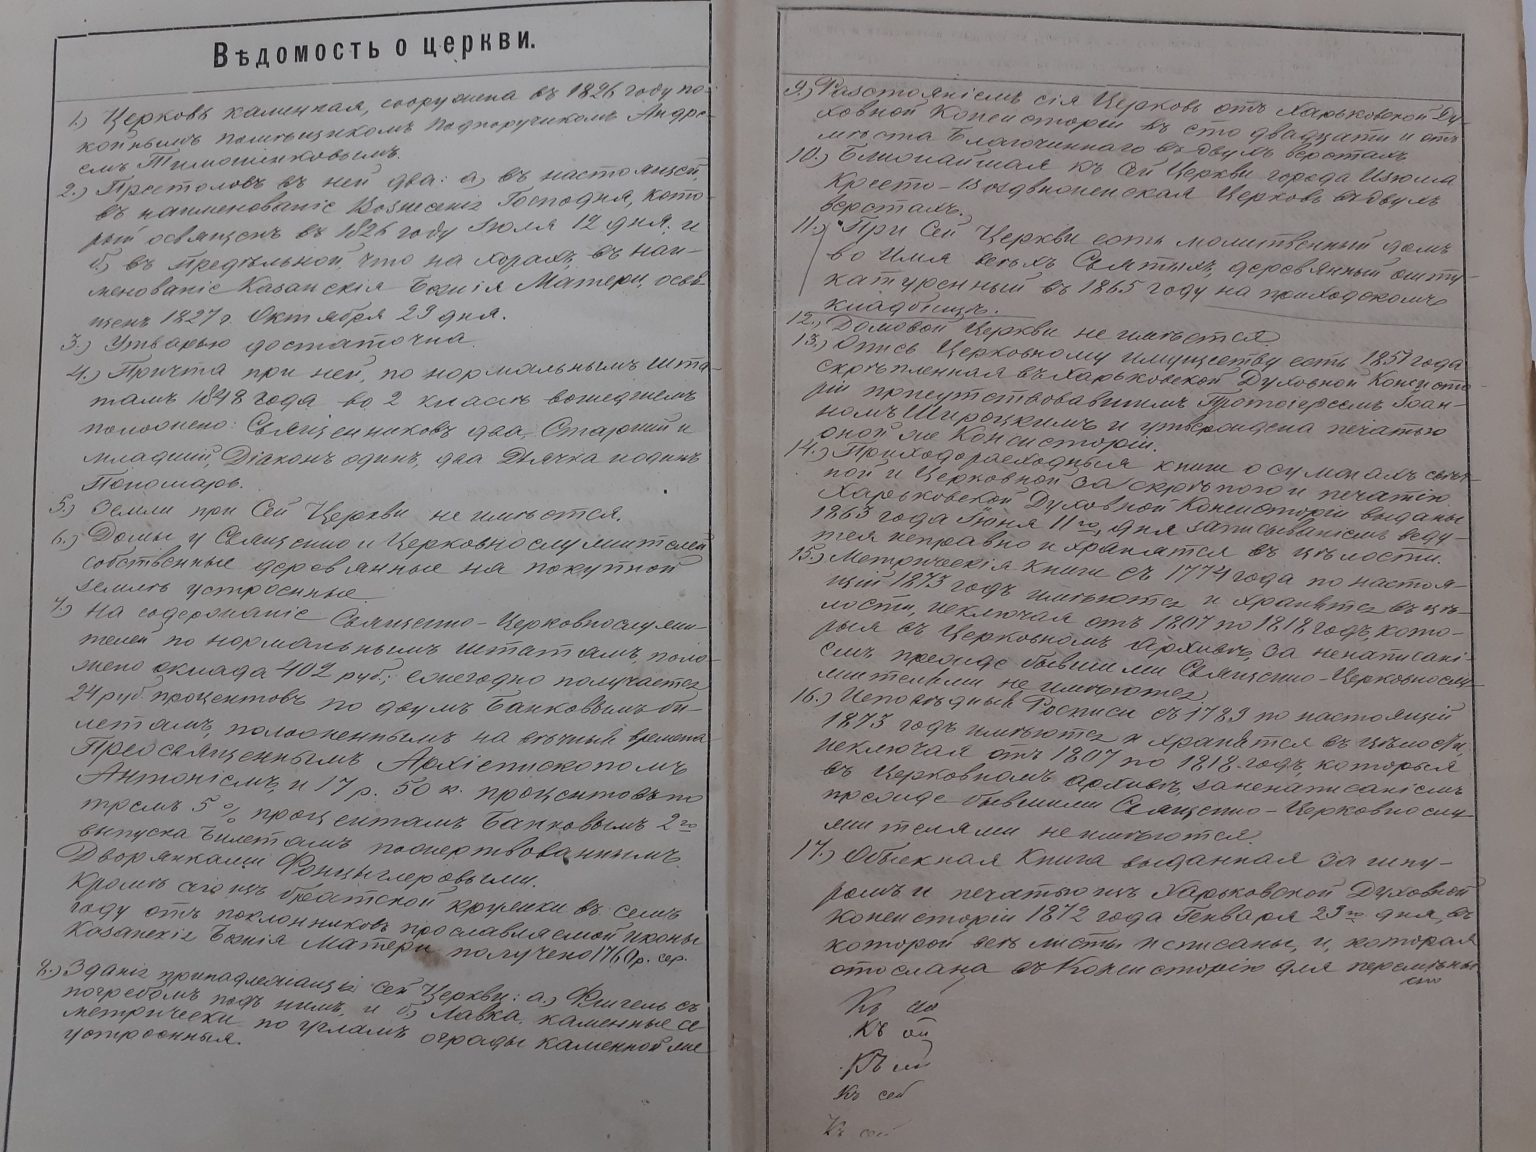 Вѣдомость о церкви.
1.) Церковь каменная, сооружена въ 1826 году по-
койнымъ помѣщикомъ Подпоручикомъ Андре-
емъ Тимошенковымъ.
2.) Престоловъ въ ней два: а) въ настоящей,
въ наименованіе Вознесенія Господня, кото-
рый освященъ въ 1826 году Іюля 12 дня; и
б) въ предѣльной, что на хорахъ, въ наи-
менованіе Казанскія Божія Матери, освя-
щенъ 1827 г. Октября 23 дня.
3.) Утварью достаточна.
4.) Причта при ней, по нормальнымъ шта-
тамъ 1848 года во 2 классъ вошедшемъ
положено: Священниковъ два, Старшій и
младшій, Діаконъ одинъ, два Дьячка и одинъ
Пономарь.
5.) Земли при Сей Церкви не имѣется.
6.) Домы у Священно и Церковнослужителей
собственные деревянные на покупной
землѣ устроенные.
7.) На содержаніе Священно-Церковнослужи-
телей по нормальнымъ штатамъ, поло-
жено оклада 402 руб.; ежегодно получается
24 руб. процентовъ по двумъ Банковымъ би-
летамъ, положеннымъ на вѣчныя времена
Преосвященнымъ Архіепископомъ
Антоніемъ, и 17 р. 50 к. процентовъ по
тремъ 5 % процентамъ Банковымъ 2го
выпуска Билетамъ пожертвованнымъ
Дворянками Фонцыглеровыми.
Кромѣ сего изъ братской кружки въ семъ
году отъ поклонниковъ прославляемой иконы
Казанскія Божія Матери получено 1760 р. сер.
8.) Зданія принадлежащія сей Церкви: а.) Флигель съ
погребомъ подъ нимъ, и б.) Лавка, каменные си-
метрически по угламъ ограды каменной же
устроенныя.
9.) Разстояніемъ сія Церковь отъ Харьковской Ду-
ховной Консисторіи въ сто двадцати и отъ
мѣста Благочиннаго въ двухъ верстахъ
10.) Ближайшая къ Сей Церкви города Изюма
Кресто-Воздвиженская Церковь въ двухъ
верстахъ.
11.) При Сей Церкви есть молитвенный домъ
во Имя всѣхъ Святыхъ, деревянный ошту-
катуренный въ 1865 году на приходскомъ
кладбищѣ.
12.) Домовой Церкви не имѣется.
13.) Опись Церковному имуществу есть 1851 года
скрѣпленная въ Харьковской Духовной Консисто-
ріи присутствовавшимъ Протоіереемъ Іоан-
номъ Широцкимъ и утверждена печатью
оной же Консисторіи.
14.) Приходорасходныя книги о суммахъ свѣч-
ной и Церковной за скрѣпою и печатію
Харьковской Духовной Консисторіи выданы
1863 года Іюня 11го дня записываніемъ веду-
тся исправно и хранятся въ цѣлости.
15.) Метрическія книги съ 1774 года по настоя-
щій 1873 годъ имѣются и хранятся въ цѣ-
лости, исключая отъ 1807 по 1818 годъ, кото-
рыя въ Церковномъ архивѣ, за ненаписані-
емъ прежде бывшими Священно-Церковнослу-
жителями не имѣются.
16.) Исповѣдныя Росписи съ 1783 по настоящій
1873 годъ имѣются и хранятся въ цѣлости,
исключая отъ 1807 по 1818 годъ, которыя
въ Церковномъ архивѣ, за ненаписаніемъ
прежде бывшими Священно-Церковнослу-
жителями не имѣются.
17.) Обыскная Книга выданная за шну-
ромъ и печатью изъ Харьковской Духовной
Консисторіи 1872 года Генваря 23го дня, въ
которой всѣ листы исписаны, и, которая
отослана въ Консисторію для перемѣны
Къ
Къ
Къ
Къ сей
Къ сей